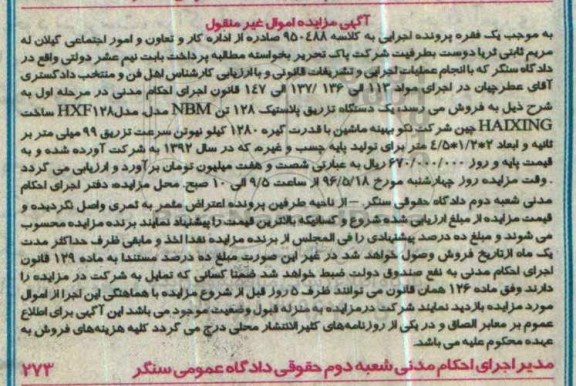 آگهی مزایده اموال غیر منقول
به موجب یک فقره پرونده اجرایی به کلاسه ۹۵۰۴۸۸ صادره از اداره کار و تعاون و امور اجتماعی گیلان له
مریم ثابتی ثریا دوست بطرفیت شرکت پاک تحریر بخواسته مطالبه پرداخت بابت نیم عشر دولتی واقع در
دادگاه سنگر که با انجام عملیات اجرایی و تشریفات قانونی و با ارزیابی کارشناس اهل فن و منتخب دادگستری
آقای عطرچیان در اجرای مواد ۱۱۳ الی ۱۳۶ /۱۳۷ الی ۱۴۷ قانون اجرای احکام مدنی در مرحله اول به
شرح ذیل به فروش می رسد: یک دستگاه تزریق پلاستیک ۱۲۸ تن NBM مدل، مدل HXF۱۲۸ ساخت
HAIXING چین شرکت نکو بهینه ماشین با قدرت گیره ۱۲۸۰ کیلو نیوتن سرعت تزریق ۹۹ میلی متر بر
ثانیه و ابعاد ۲*۱/۳*۴/۵ متر برای تولید پایه چسب و غیره که در سال ۱۳۹۲ به شرکت آورده شده و به
قیمت پایه و روز ۶۷۰/۰۰۰/۰۰۰ ریال به عبارتی شصت و هفت میلیون تومان برآورد و ارزیابی می گردد
. وقت مزایده روز چهارشنبه مورخ ۹۶/۵/۱۸ از ساعت ۹/۵ الی ۱۰ صبح. محل مزایده دفتر اجرای احکام
مدنی شعبه دوم دادگاه حقوقی سنگر – از ناحیه طرفین پرونده اعتراض مثمر به ثمری واصل نگردیده و
قیمت مزایده از مبلغ ارزیابی شده شروع و کسانیکه بالاترین قیمت را پیشنهاد نمایند برنده مزایده محسوب
می شوند و مبلغ ده درصد پیشنهادی را فی المجلس از برنده مزایده نقدا اخذ و مابقی ظرف حداکثر مدت
یک ماه از تاریخ فروش وصول خواهد شد در غیر این صورت مبلغ ده درصد مستندا به ماده ۱۲۹ قانون
اجرای احکام مدنی به نفع صندوق دولت ضبط خواهد شد ضمنا کسانی که تمایل به شرکت در مزایده را
دارند وفق ماده ۱۲۶ همان قانون می توانند ظرف ۵ روز قبل از شروع مزایده با هماهنگی این اجرا از اموال
مورد مزایده بازدید نمایند شرکت در مزایده به منزله قبول وضعیت موجود می باشد این آگهی برای اطلاع
عموم بر معابر الصاق و در یکی از روزنامه‌های کثیرالانتشار محلی درج می گردد کلیه هزینه‌های فروش به
عهده محکوم علیه می باشد.
مدیر اجرای احکام مدنی شعبه دوم حقوقی دادگاه عمومی سنگر ۲۷۳